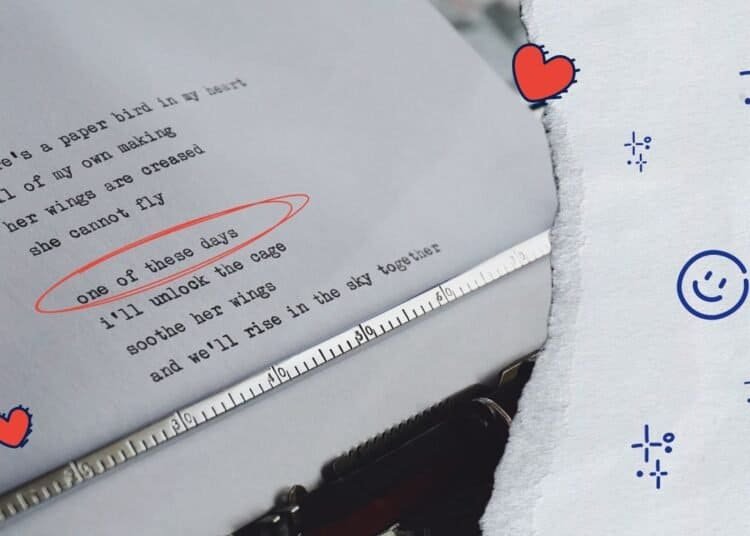 re's a paper bird in my heart
ll of my own making
her wings are creased
she cannot fly
one of these days
i'll unlock the cage
soothe her wings
and we'll rise in the sky together
20 30 40 50 60 70